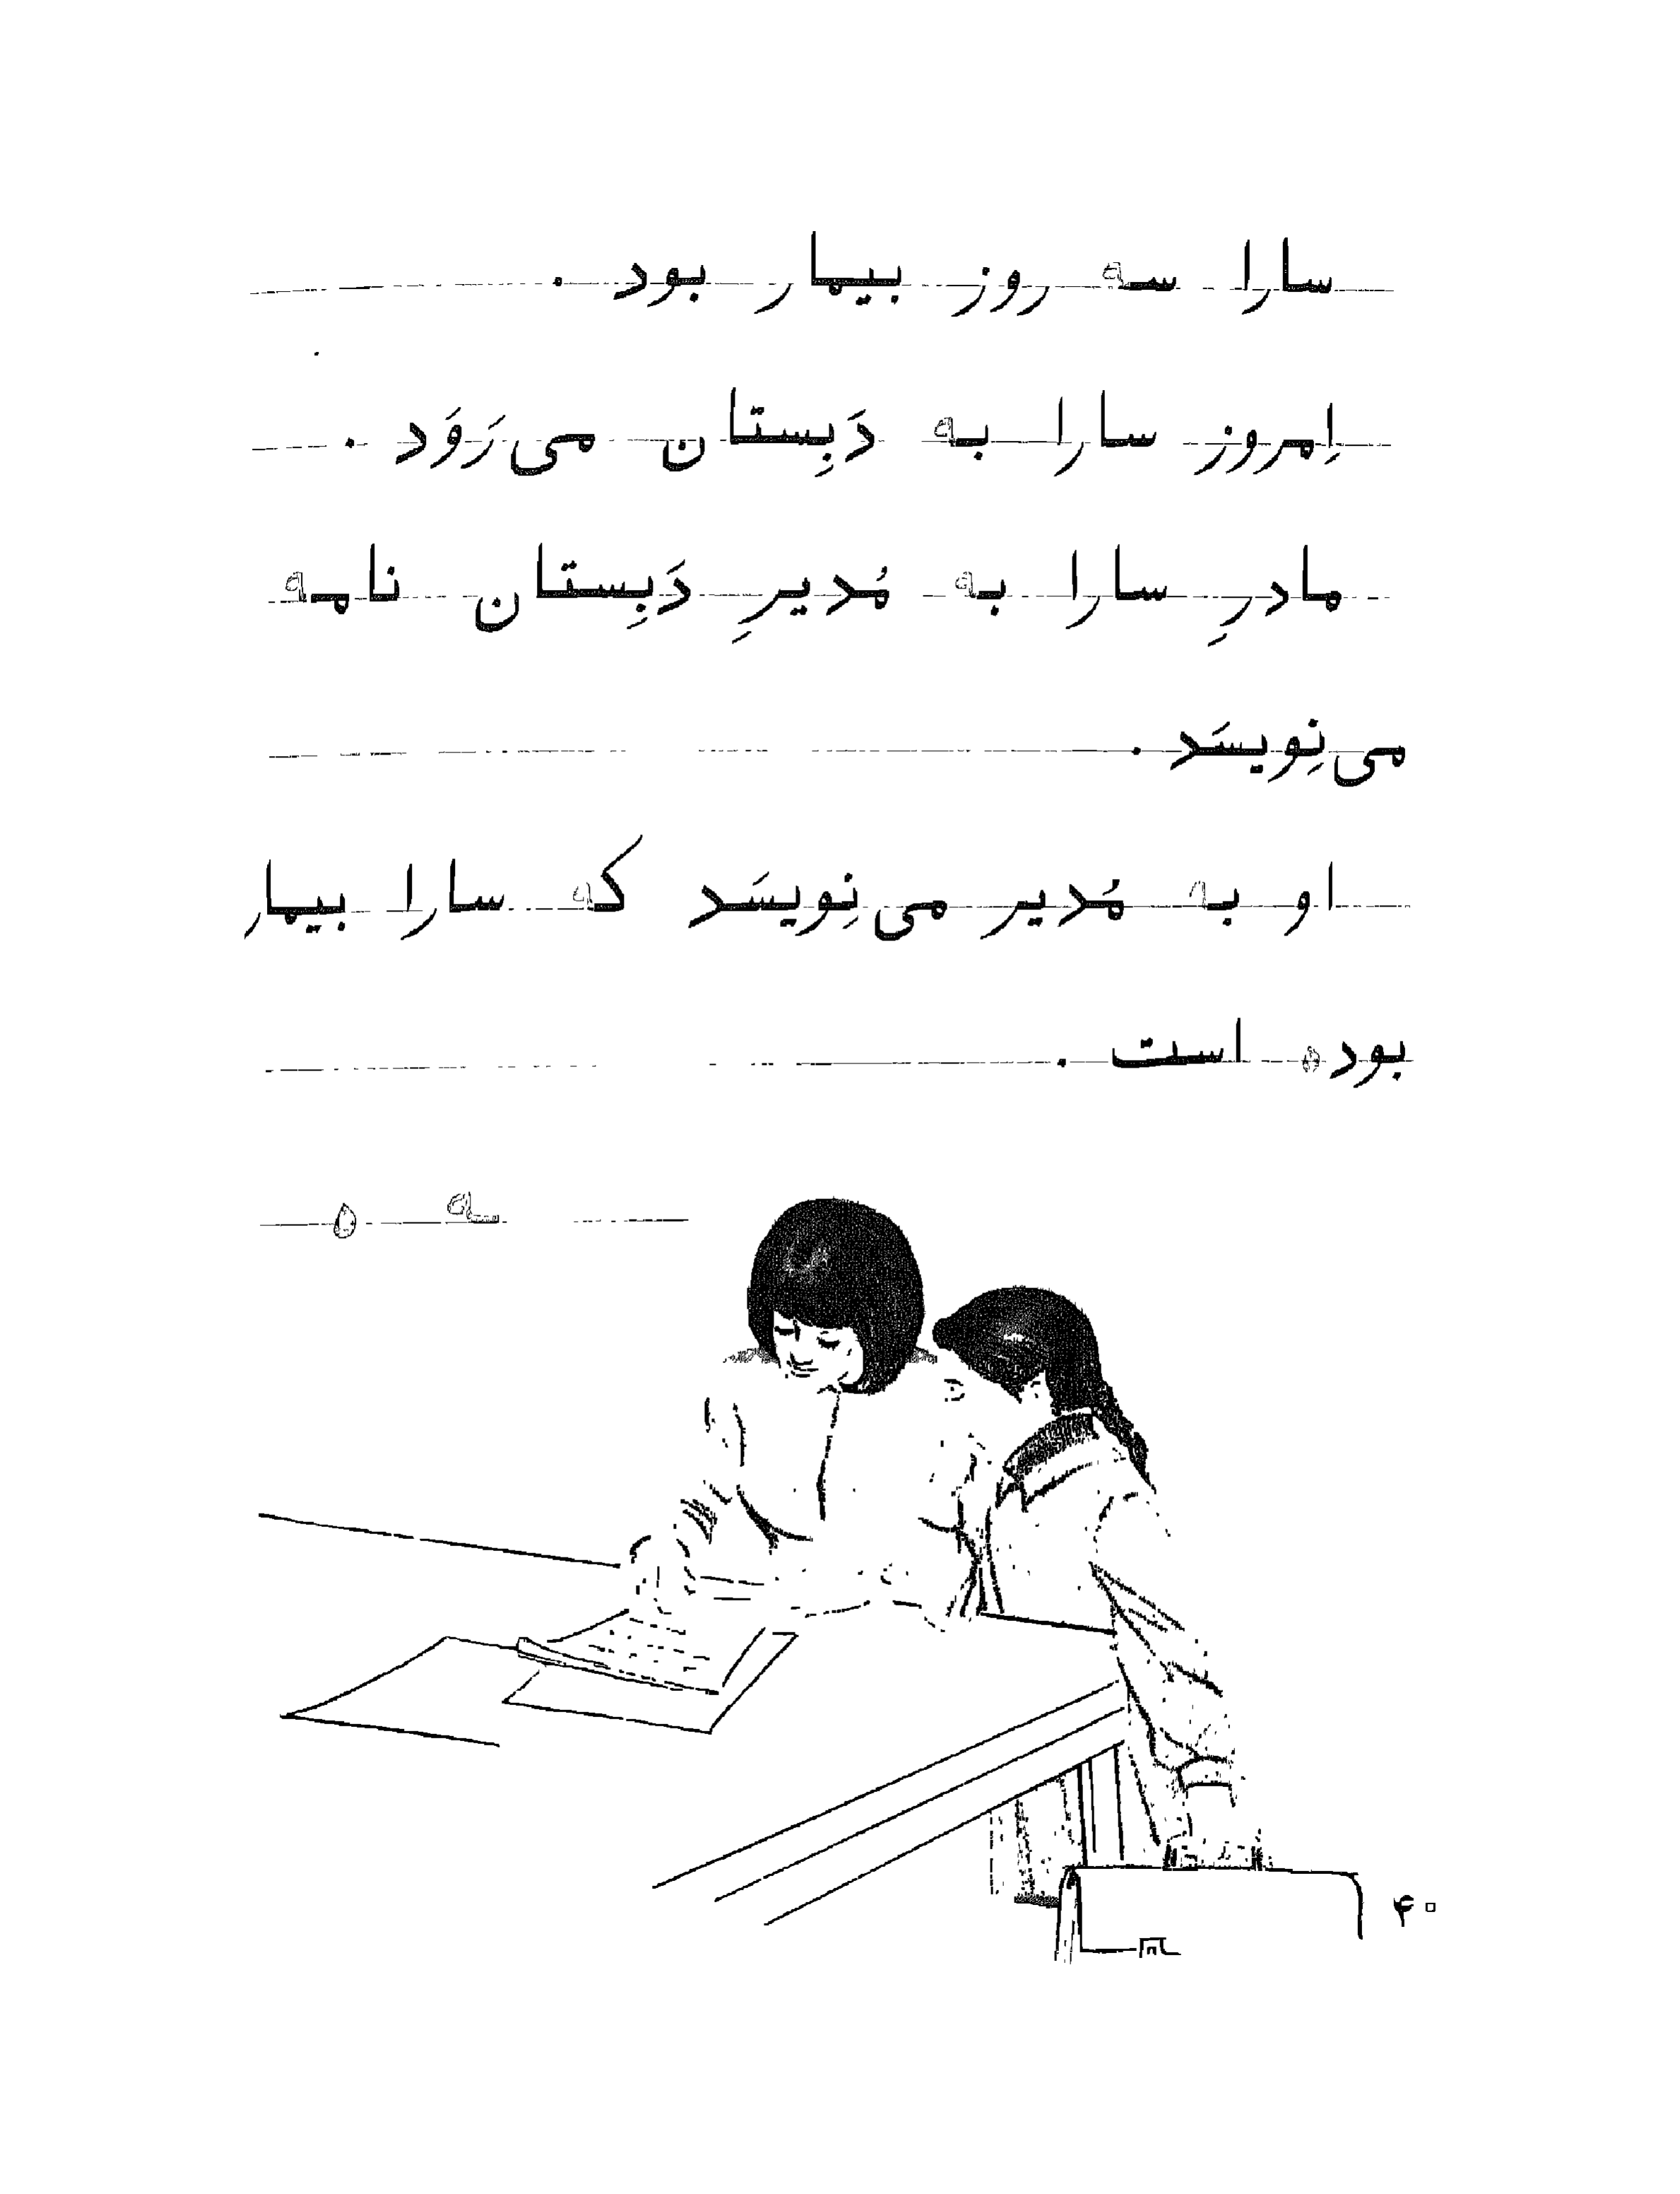 سارا سه روز بیمار بود .
اِمروز سارا به دَبِستان می‌رَوَد .
مادرِ سارا به مُدیرِ دَبِستان نامه
می‌نِویسَد .
او به مُدیر می‌نِویسَد که سارا بیمار
بوده است .
ـه ه
۴۰